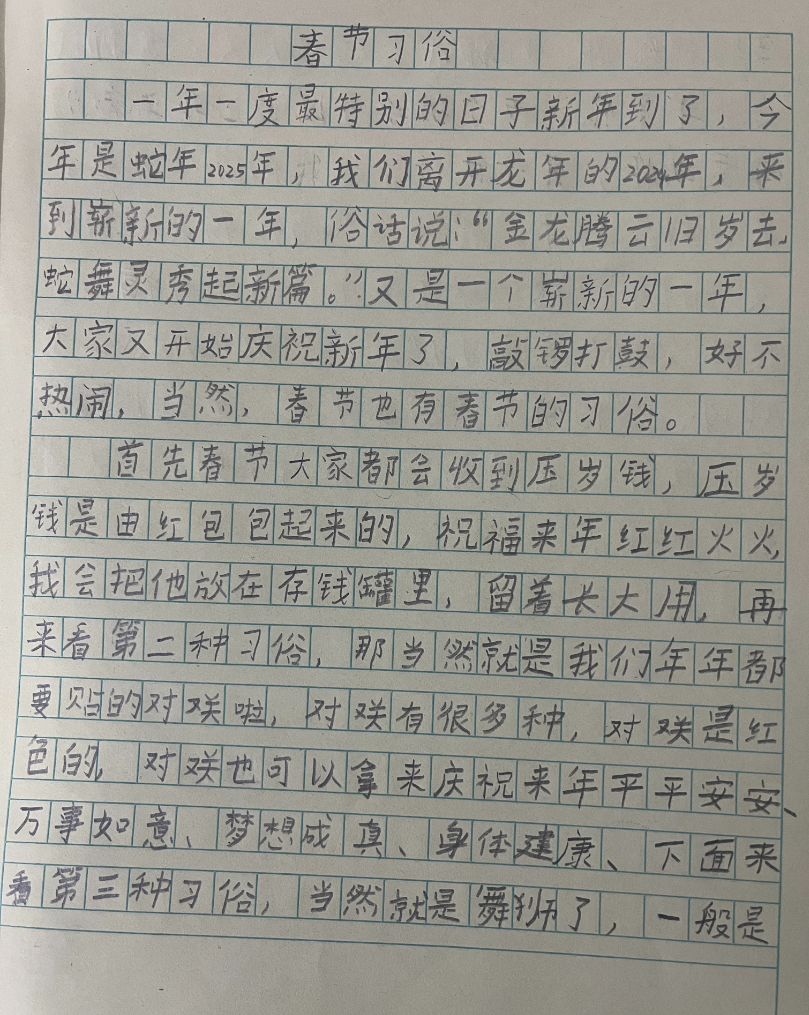 春节习俗
一年一度最特别的日子新年到了，今
年是蛇年2025年，我们离开龙年的2024年，来
到崭新的一年，俗话说：“金龙腾云旧岁去，
蛇舞灵秀起新篇。”又是一个崭新的一年，
大家又开始庆祝新年了，敲锣打鼓，好不
热闹，当然，春节也有春节的习俗。
首先春节大家都会收到压岁钱，压岁
钱是由红包包起来的，祝福来年红红火火，
我会把他放在存钱罐里，留着长大用，再
来看第二种习俗，那当然就是我们年年都
要贴的对联啦，对联有很多种，对联是红
色的，对联也可以拿来庆祝来年平平安安、
万事如意、梦想成真、身体建康、下面来
看第三种习俗，当然就是舞狮了，一般是